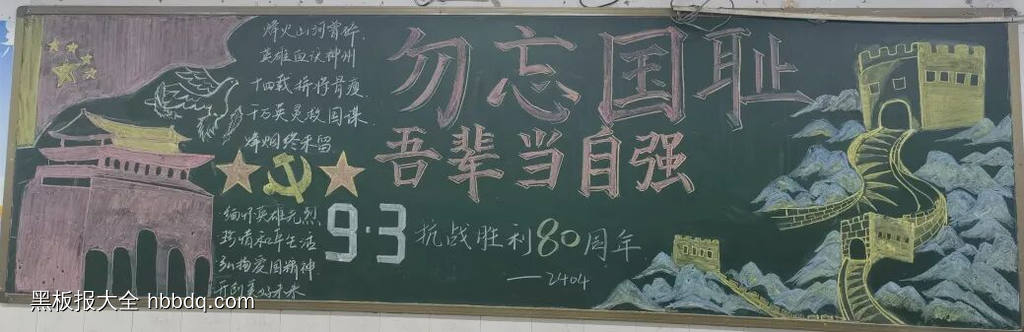 勿忘国耻
吾辈当自强
烽火山河
英雄血沃神州
十四载
千万英灵故国谋
烽烟终未留
缅怀英雄先烈
珍惜和平生活
弘扬爱国精神
开创美好未来
9·3 抗战胜利80周年
—2404
黑板报大全 hbbdq.com